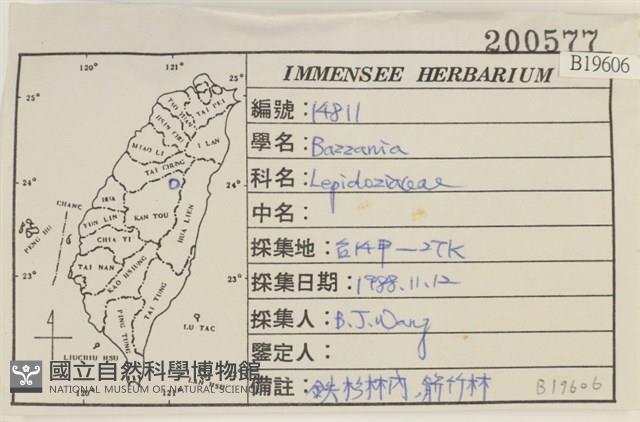 200577
B19606
IMMENSEE HERBARIUM
編號：14811
學名：Bazzania
科名：Lepidoziaceae
中名：
採集地：台14甲—27K
採集日期：1988.11.12
採集人：B.J.Wang
鑒定人：
備註：鉄杉林內、箭竹林
B19606
120°
121°
25°
25°
TAI PEI
I LAN
MIAO LI
TAI CHUNG
24°
24°
CHANG
HUA
NAN TOU
HUA LIEN
YUN LIN
PENG HU
CHIA YI
TAI NAN
KAO HSIUNG
23°
23°
TAI TUNG
PING TUNG
LU TAO
LIUCHIU HSU
國立自然科學博物館
NATIONAL MUSEUM OF NATURAL SCIENCE
120°
121°